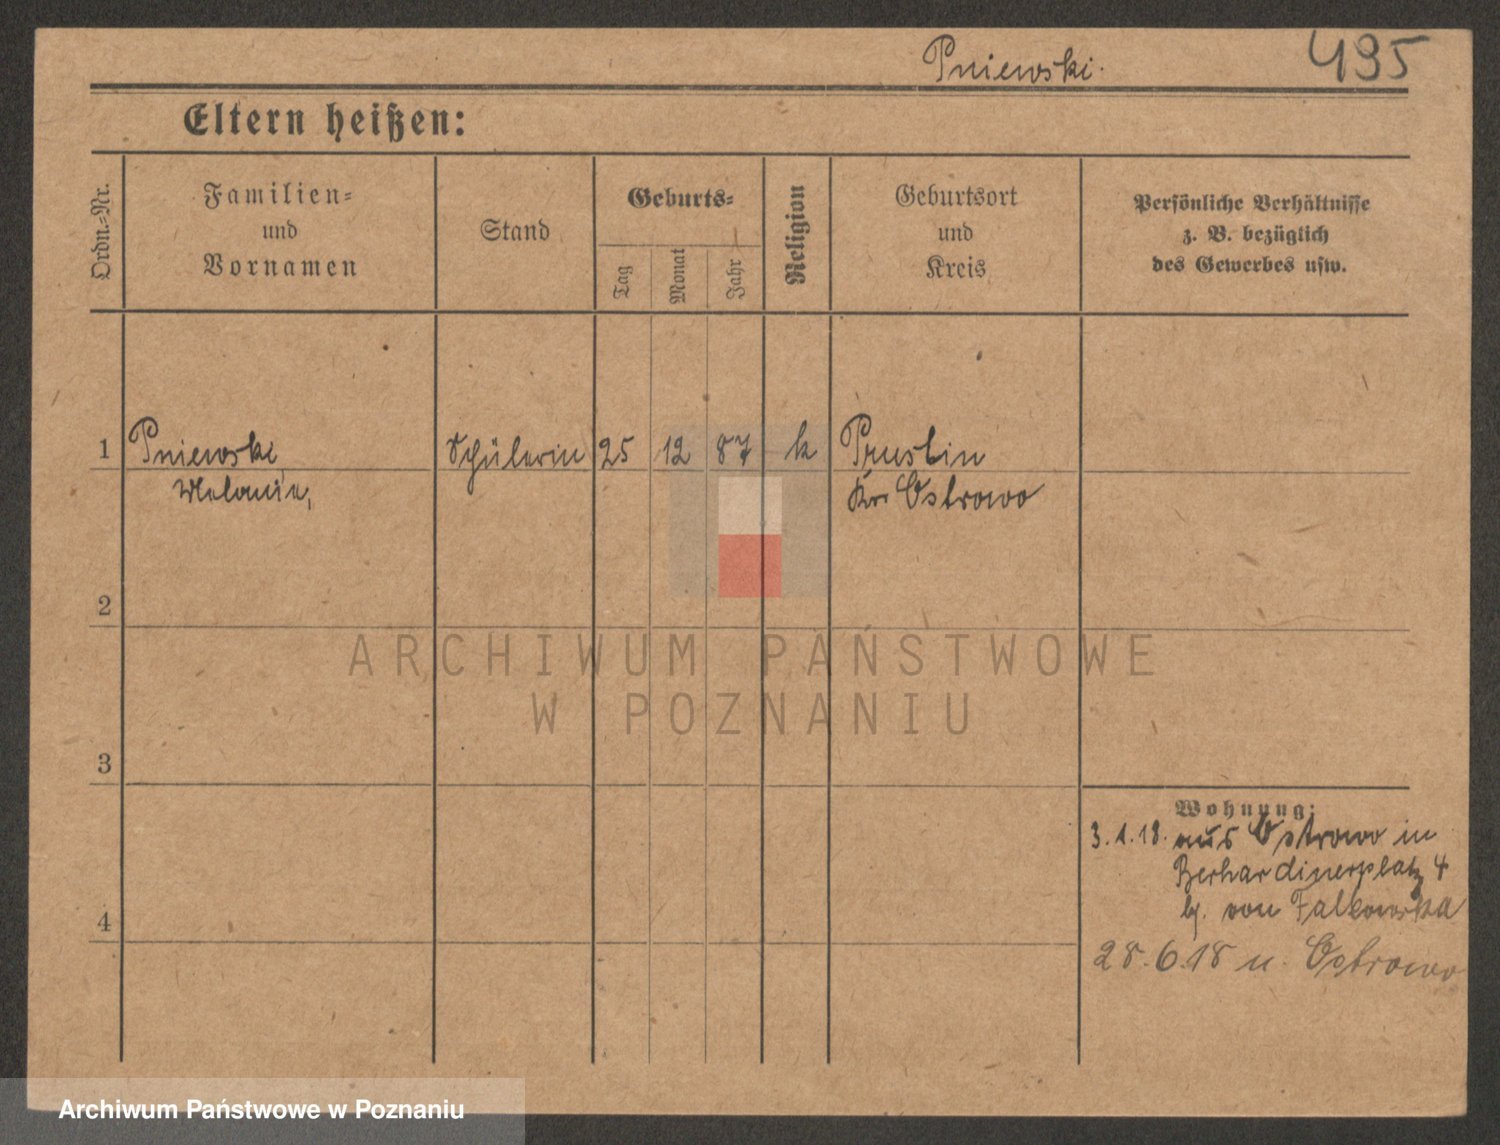 Pniewski.
495
Eltern heißen:
Ordn.-Nr.
Familien-
und
Vornamen
Stand
Geburts-
Tag
Monat
Jahr
Religion
Geburtsort
und
Kreis
Persönliche Verhältnisse
z. B. bezüglich
des Gewerbes usw.
1 Pniewski, Schülerin 25 12 87 k Pruslin
Melanie, Kr. Ostrowo
2
3
4
Wohnung:
3.1.18. aus Ostrowo in
Berhardinerplatz 4
bj. von Falkowska
28.6.18 n. Ostrowo
ARCHIWUM PAŃSTWOWE
W POZNANIU
Archiwum Państwowe w Poznaniu